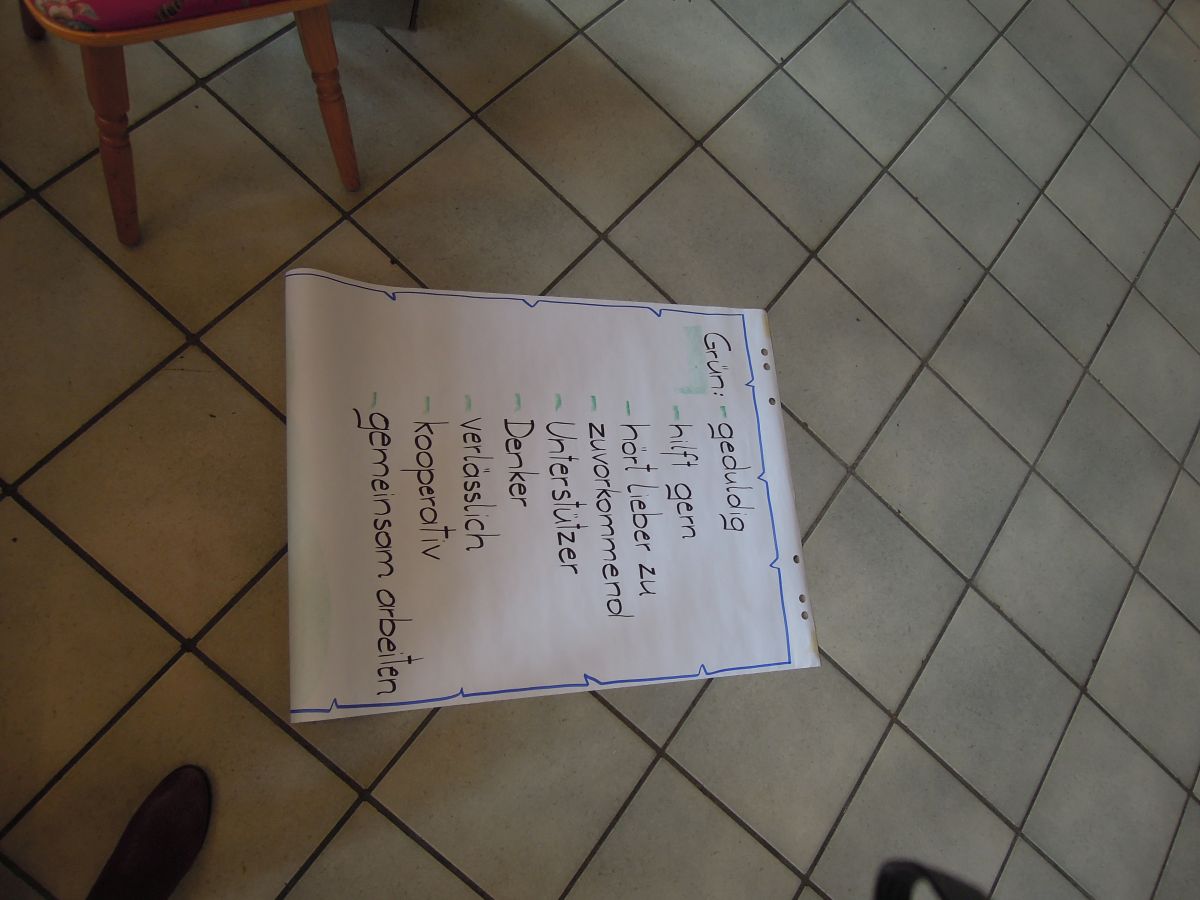 Grün: - geduldig
- hilft gern
- hört lieber zu
- zuvorkommend
- Unterstützer
- Denker
- verlässlich
- kooperativ
- gemeinsam arbeiten